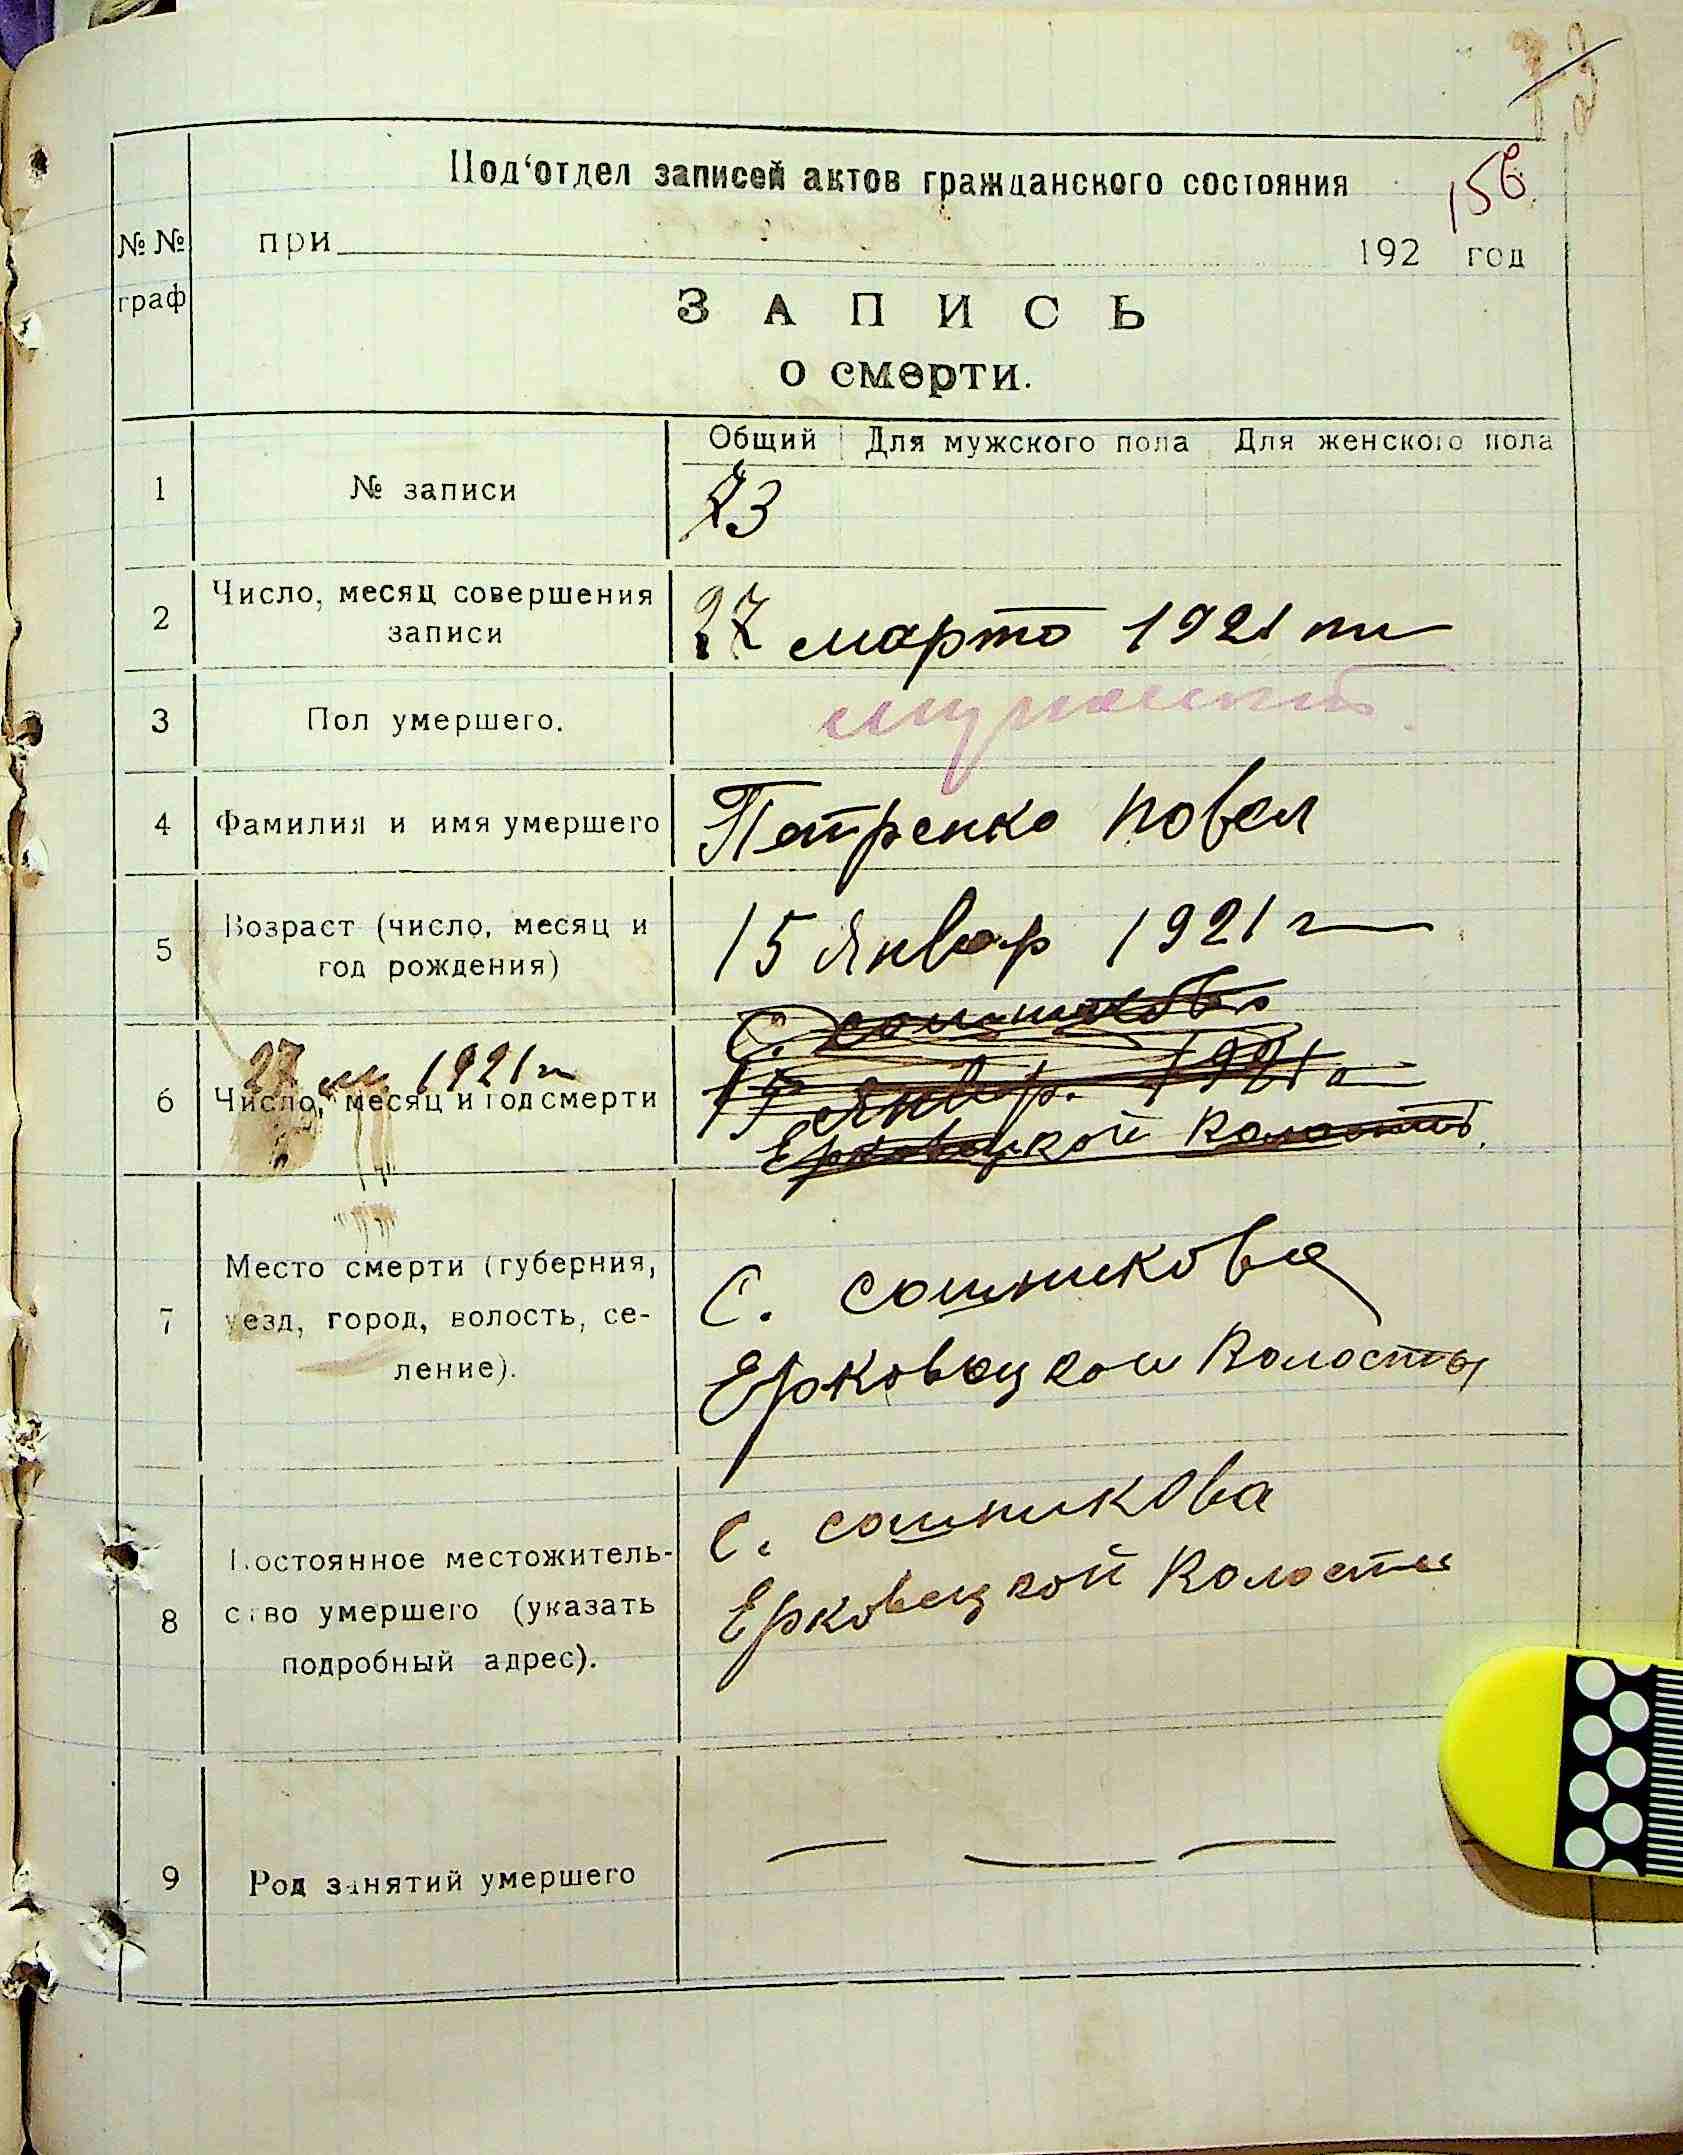 156
Под'отдел записей актов гражданского состояния
№ №
граф
при 192 год
ЗАПИСЬ
о смерти.
Общий Для мужского пола Для женского пола
1 № записи 73
2 Число, месяц совершения
записи
27 марто 1921
3 Пол умершего. мужский
4 Фамилия и имя умершего Петренко Повел
5 Возраст (число, месяц и
год рождения)
15 Январ 1921 г
С. сошникова
27 м 1921 г
6 Число, месяц и год смерти
Январ. 1921 г
Ерковецкой Волости
7 Место смерти (губерния,
уезд, город, волость, се-
ление).
С. сошникова
Ерковецкой Волосты
8 Постоянное местожитель-
ство умершего (указать
подробный адрес).
С. сошникова
Ерковецкой Волости
9 Род занятий умершего — — —